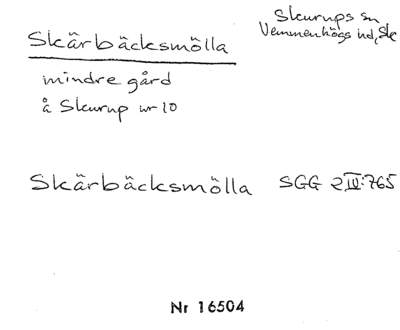 Skurups sn
Vemmenhögs hd, Sk
Skärbäcksmölla
mindre gård
å Skurup nr 10
Skärbäcksmölla SGG 2IV:765
Nr 16504